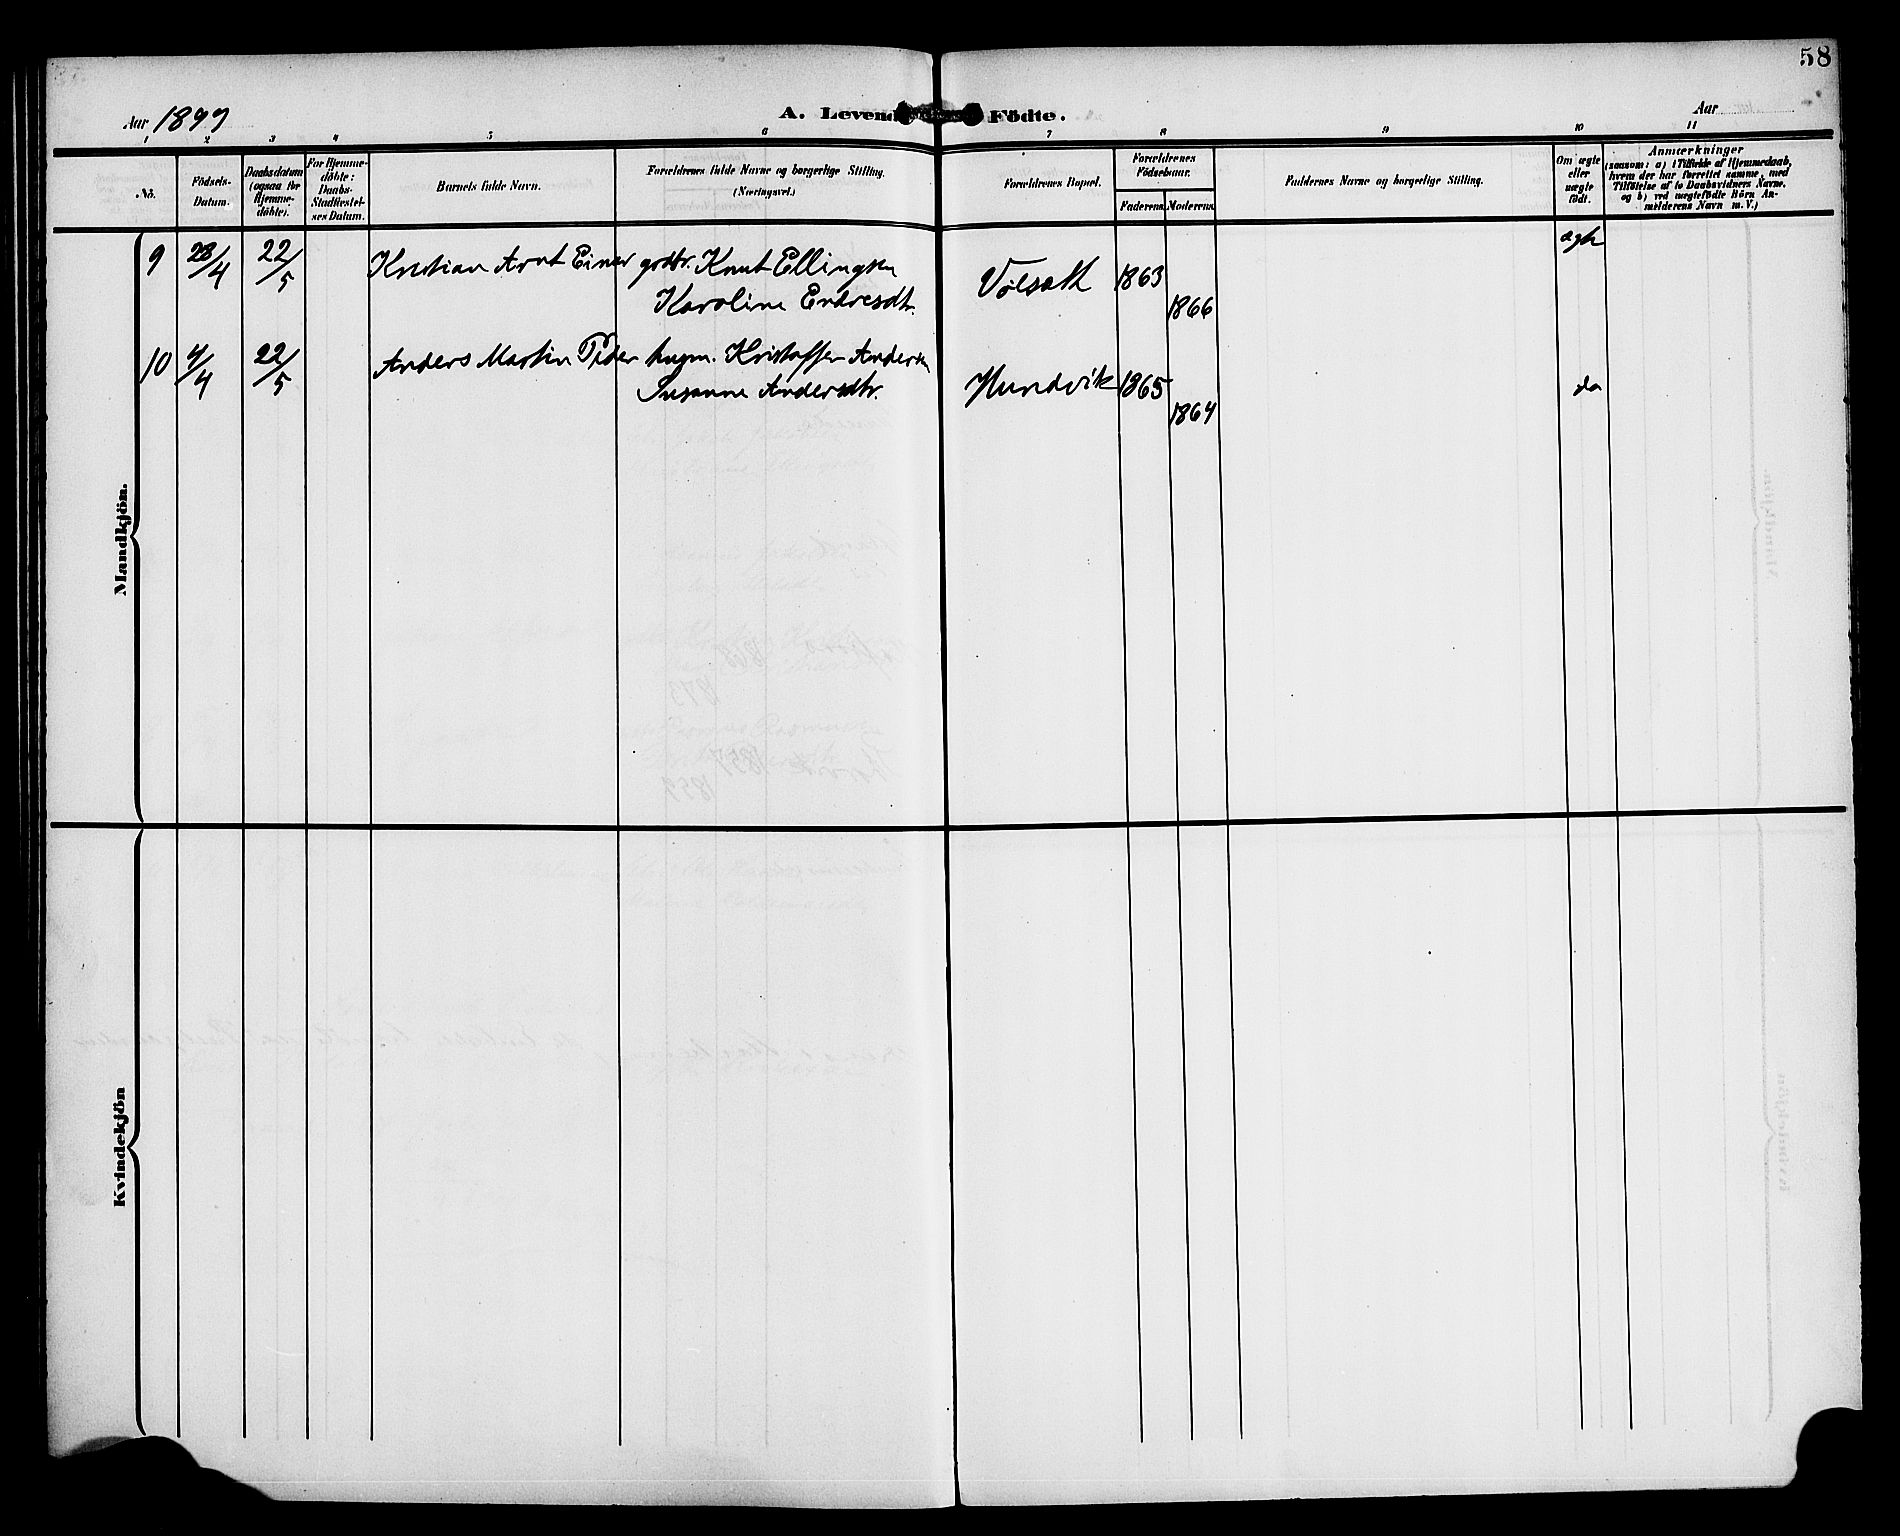 58
Aar 1897
A. Levende Födte.
Aar
1 2 3 4 5 6 7 8 9 10 11
No.
Födsels-
Datum.
Daabsdatum
(ogsaa for
Hjemme-
döbte).
For Hjemme-
döbte:
Daabs-
Stadfæstel-
ses Datum.
Barnets fulde Navn.
Forældrenes fulde Navne og borgerlige Stilling.
(Næringsvei.)
Forældrenes Bopæl.
Forældrenes
Födselsaar.
Faderens. Moderens.
Faddernes Navne og borgerlige Stilling.
Om ægte
eller
uægte
födt.
Anmærkninger
(saasom: a) i Tilfælde af Hjemmedaab,
hvem der har forrettet samme, med
Tilföielse af to Daabsvidners Navne,
og b) ved uægtefödte Börn An-
melderens Navn m. V.)
Mandkjön.
9 28/4 22/5 Kristian Arnt Einar grdbr. Knut Ellingsen 1863 ægte
Karoline Endresdtr. 1866
10 4/4 22/5 Anders Martin Peder husm. Kristoffer Andersen
Susanne Andersdtr. Hundvik 1865 do
1864
Kvindekjön